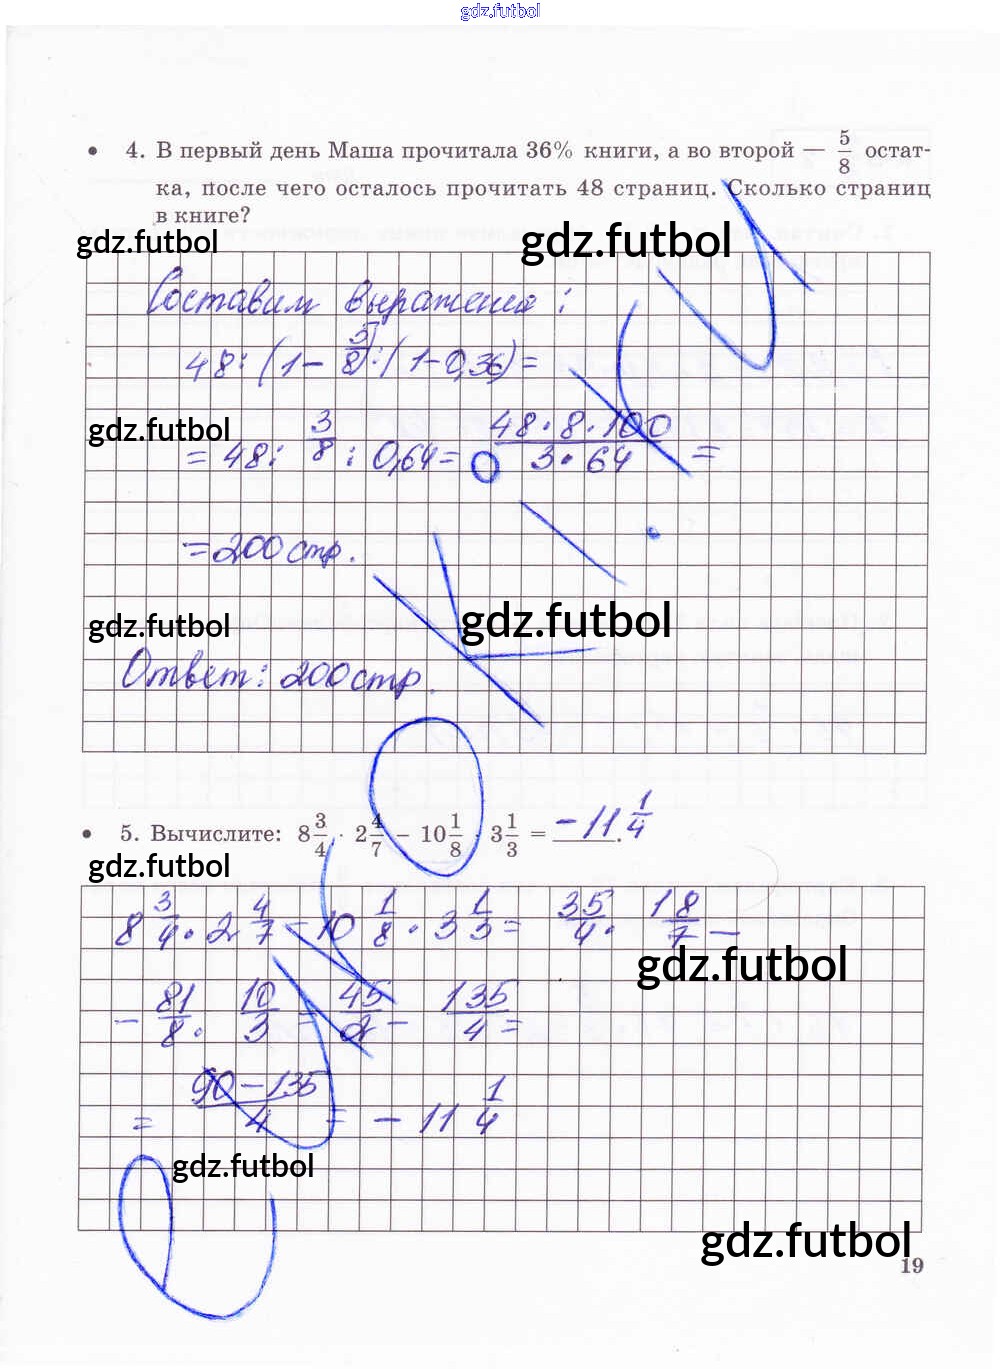 gdz.futbol
• 4. В первый день Маша прочитала 36% книги, а во второй — 5/8 остат-
ка, после чего осталось прочитать 48 страниц. Сколько страниц
в книге?
gdz.futbol gdz.futbol
Составим выражения:
48:(1-5/8):(1-0,36)=
gdz.futbol
=48:3/8:0,64=48·8·100/3·64=
=200 стр.
gdz.futbol gdz.futbol
Ответ: 200 стр.
• 5. Вычислите: 8 3/4 · 2 4/7 − 10 1/8 · 3 1/3 = -11 1/4.
gdz.futbol
8 3/4 · 2 4/7 - 10 1/8 · 3 1/3 = 35/4 · 18/7 -
gdz.futbol
- 81/8 · 10/3 = 45/2 - 135/4 =
= 90-135/4 = -11 1/4
gdz.futbol
gdz.futbol
19